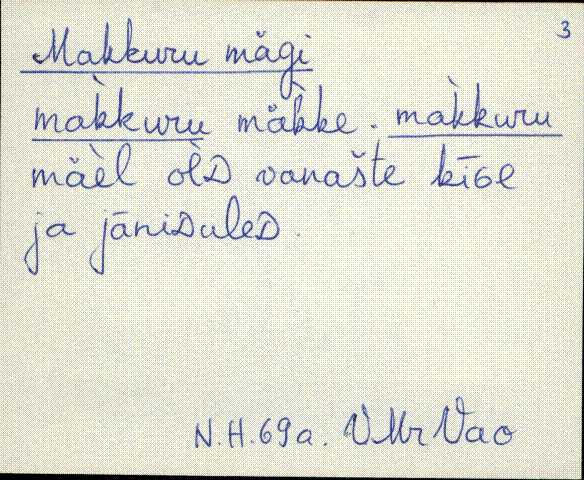 3
Makkuru mägi
mak̀kuru mäk̀ke. mak̀kuru
mäèl ol̀D vanašte kīGe
ja jāniDuleD.
N.H. 69a. VMr Vao